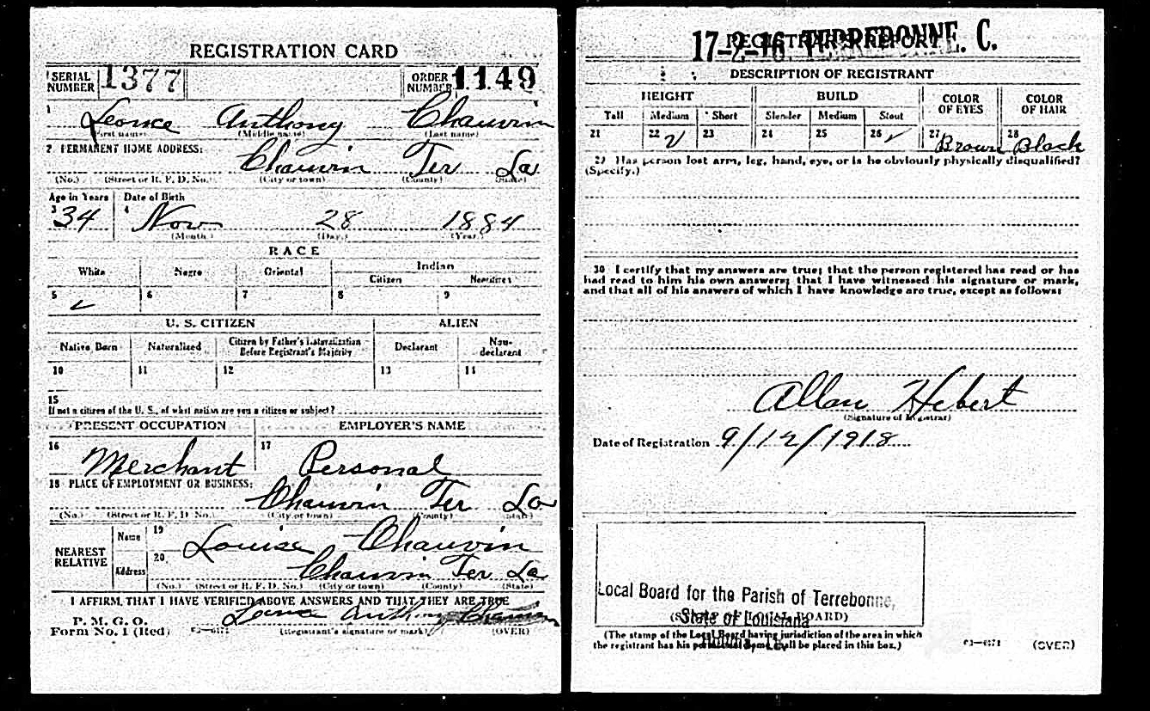 REGISTRATION CARD
SERIAL NUMBER 1377 ORDER NUMBER 1149
1 Leonce Anthony Chauvin
(First name) (Middle name) (Last name)
2 PERMANENT HOME ADDRESS:
Chauvin Ter La
(No.) (Street or R. F. D. No.) (City or town) (County) (State)
Age in Years Date of Birth
3 34 4 Nov 28 1884
(Month.) (Day.) (Year.)
RACE
White Negro Oriental Indian
Citizen Noncitizen
5 ✓ 6 7 8 9
U. S. CITIZEN ALIEN
Native Born Naturalized Citizen by Father's Naturalization Before Registrant's Majority Declarant Non-declarant
10 11 12 13 14
15
If not a citizen of the U. S., of what nation are you a citizen or subject?
PRESENT OCCUPATION EMPLOYER'S NAME
16 Merchant 17 Personal
18 PLACE OF EMPLOYMENT OR BUSINESS:
Chauvin Ter La
(No.) (Street or R. F. D. No.) (City or town) (County) (State)
NEAREST RELATIVE Name 19 Louise Chauvin
Address 20 Chauvin Ter La
(No.) (Street or R. F. D. No.) (City or town) (County) (State)
I AFFIRM THAT I HAVE VERIFIED ABOVE ANSWERS AND THAT THEY ARE TRUE
P. M. G. O.
Form No. 1 (Red) Leonce Anthony Chauvin
(Registrant's signature or mark) (OVER)
17-2-16 TERREBONNE. C.
REGISTRAR'S REPORT
DESCRIPTION OF REGISTRANT
HEIGHT BUILD COLOR OF EYES COLOR OF HAIR
Tall Medium Short Slender Medium Stout
21 22 ✓ 23 24 25 26 ✓ 27 Brown 28 Black
29 Has person lost arm, leg, hand, eye, or is he obviously physically disqualified?
(Specify.)
30 I certify that my answers are true; that the person registered has read or has
had read to him his own answers; that I have witnessed his signature or mark,
and that all of his answers of which I have knowledge are true, except as follows:
Allan Hebert
(Signature of Registrar)
Date of Registration 9/12/1918
Local Board for the Parish of Terrebonne,
State of Louisiana
(STAMP OF LOCAL BOARD)
(The stamp of the Local Board having jurisdiction of the area in which
the registrant has his permanent home shall be placed in this box.)
(OVER)